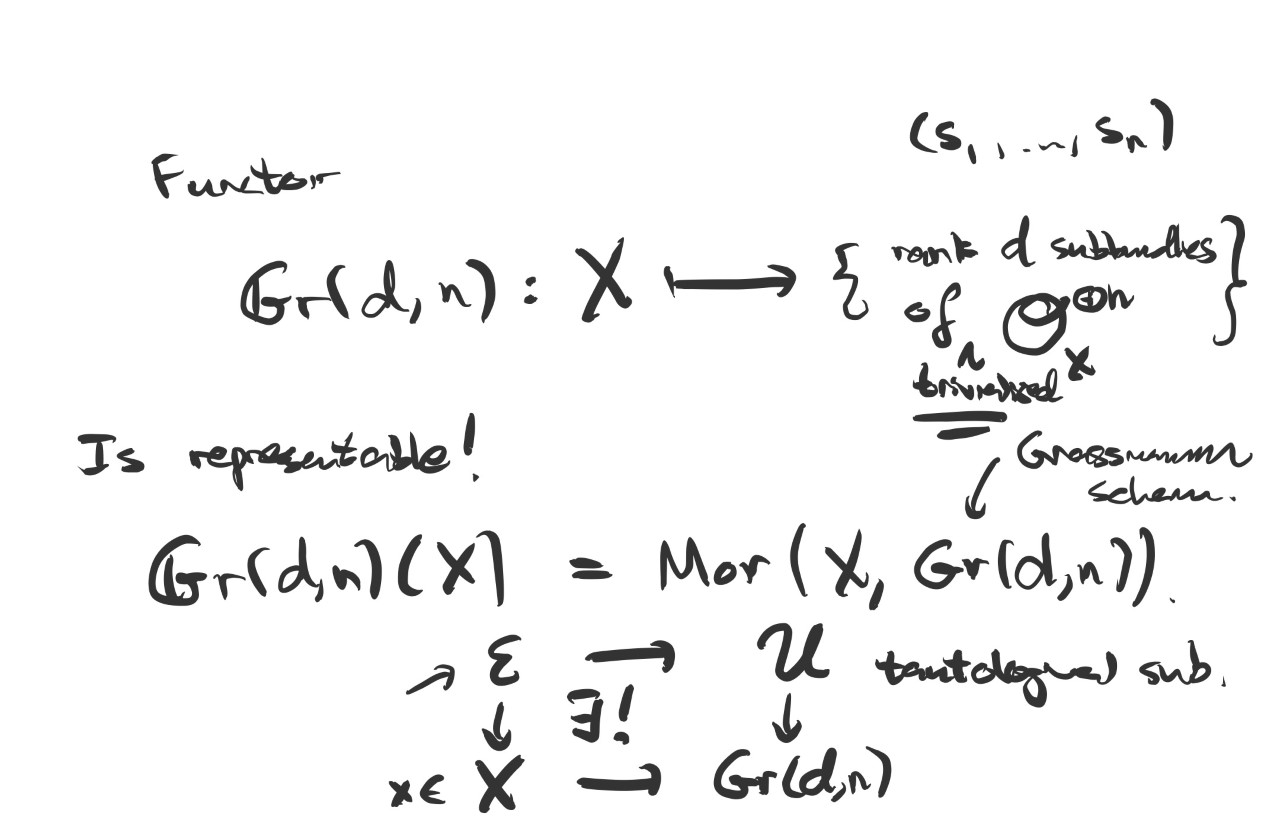 (s₁, ..., sₙ)
Functor
Gr(d, n) : X ⟼ { rank d subbundles
of ^ O_X^{⊕n} }
trivialized
Is representable!
Grassmannian
scheme.
Gr(d,n)(X) = Mor(X, Gr(d,n)).
→ ℰ → 𝒰 tautological sub.
↓ ∃! ↓
x ∈ X → Gr(d,n)